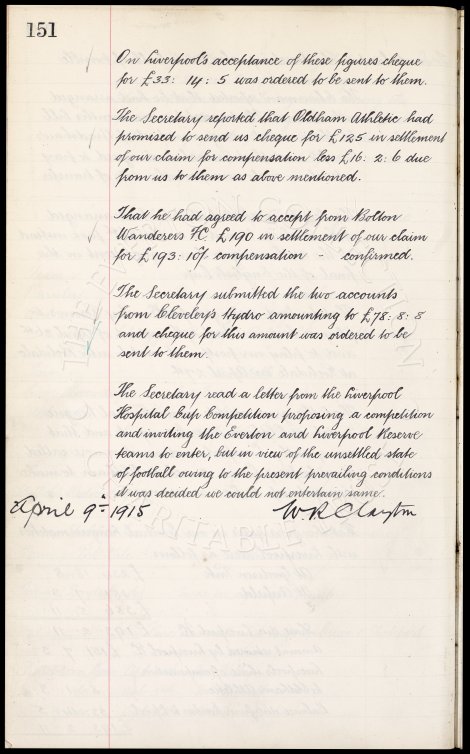 151
On Liverpool's acceptance of these figures cheque
for £33: 14: 5 was ordered to be sent to them.
The Secretary reported that Oldham Athletic had
promised to send us cheque for £125 in settlement
of our claim for compensation less £16: 2: 6 due
from us to them as above mentioned.
That he had agreed to accept from Bolton
Wanderers F.C. £190 in settlement of our claim
for £193: 10/ compensation - confirmed.
The Secretary submitted the two accounts
from Cleveleys Hydro amounting to £78: 8: 8
and cheque for this amount was ordered to be
sent to them.
The Secretary read a letter from the Liverpool
Hospital Cup Competition proposing a competition
and inviting the Everton and Liverpool Reserve
teams to enter, but in view of the unsettled state
of football owing to the present prevailing conditions
it was decided we could not entertain same.
April 9th 1915 W. R. Clayton